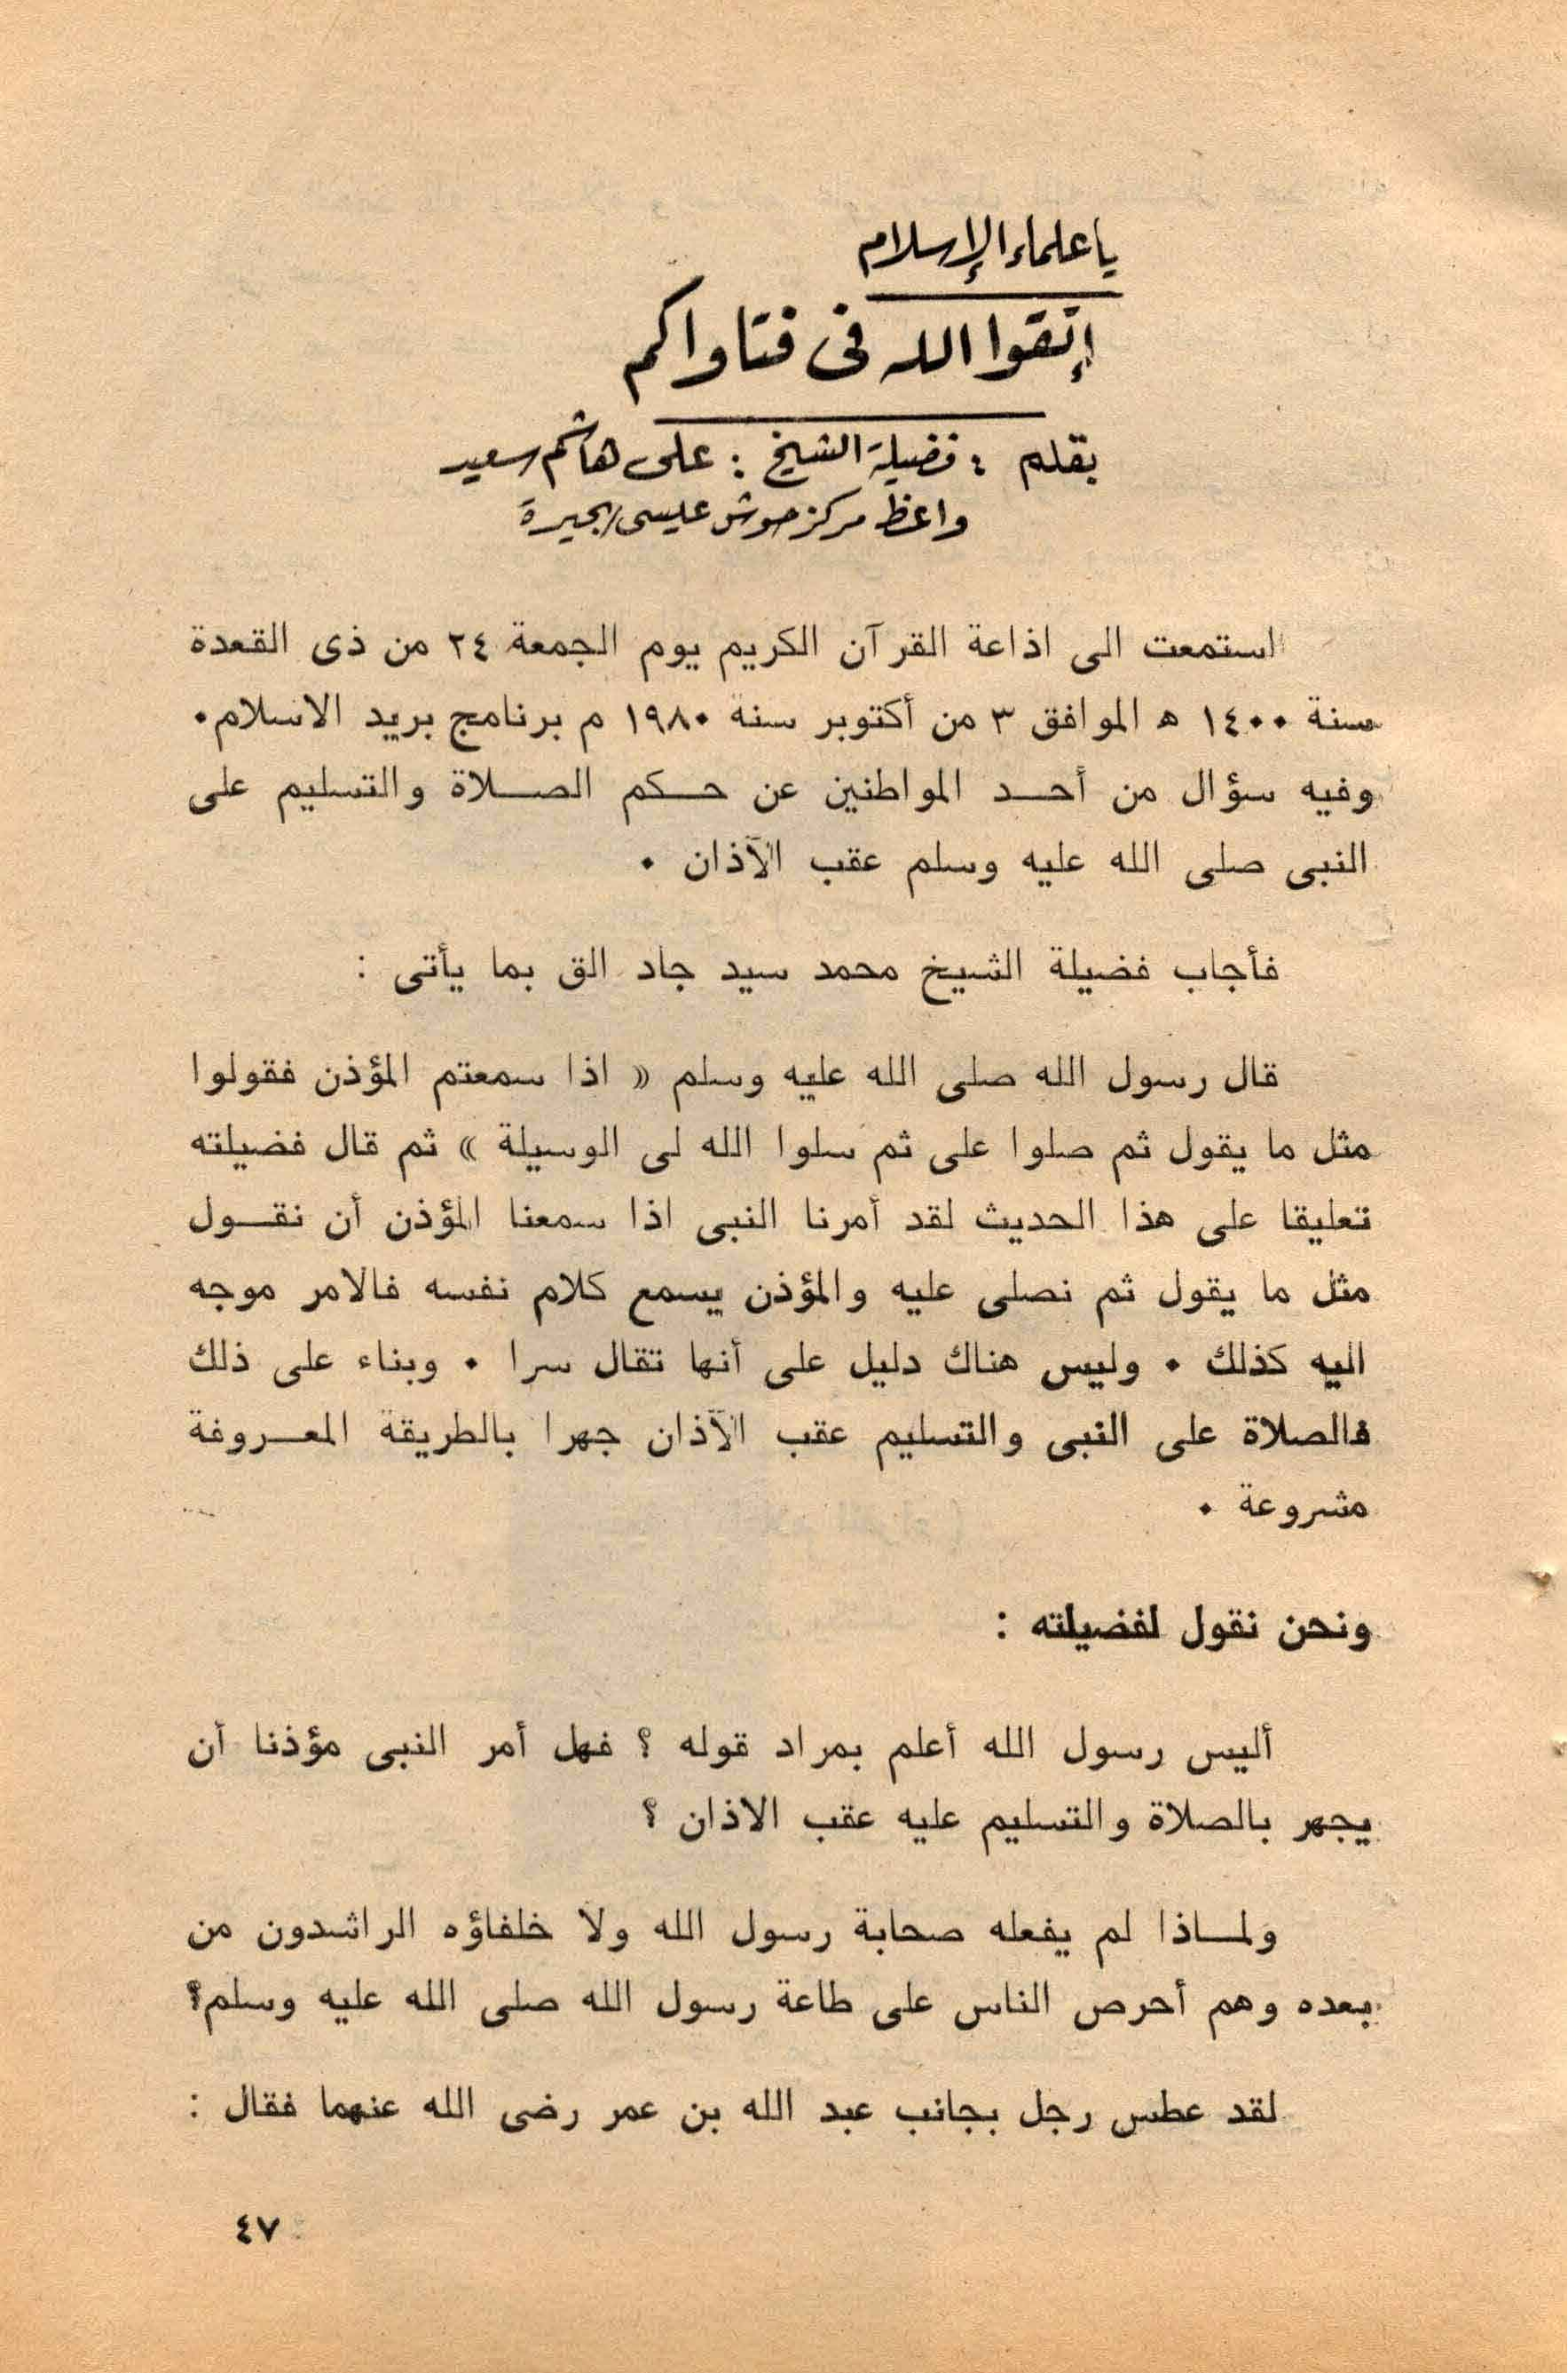 يا علماء الإسلام
إتقوا الله فى فتاواكم
بقلم : فضيلة الشيخ : على هاشم سعيد
واعظ مركز حوش عيسى / بحيرة
استمعت الى اذاعة القرآن الكريم يوم الجمعة ٢٤ من ذى القعدة
سنة ١٤٠٠ ه الموافق ٣ من أكتوبر سنة ١٩٨٠ م برنامج بريد الاسلام.
وفيه سؤال من أحد المواطنين عن حكم الصلاة والتسليم على
النبى صلى الله عليه وسلم عقب الآذان .
فأجاب فضيلة الشيخ محمد سيد جاد الق بما يأتى :
قال رسول الله صلى الله عليه وسلم « اذا سمعتم المؤذن فقولوا
مثل ما يقول ثم صلوا على ثم سلوا الله لى الوسيلة » ثم قال فضيلته
تعليقا على هذا الحديث لقد أمرنا النبى اذا سمعنا المؤذن أن نقول
مثل ما يقول ثم نصلى عليه والمؤذن يسمع كلام نفسه فالامر موجه
اليه كذلك . وليس هناك دليل على أنها تقال سرا . وبناء على ذلك
فالصلاة على النبى والتسليم عقب الآذان جهرا بالطريقة المعروفة
مشروعة .
ونحن نقول لفضيلته :
أليس رسول الله أعلم بمراد قوله ؟ فهل أمر النبى مؤذنا أن
يجهر بالصلاة والتسليم عليه عقب الاذان ؟
ولماذا لم يفعله صحابة رسول الله ولا خلفاؤه الراشدون من
بعده وهم أحرص الناس على طاعة رسول الله صلى الله عليه وسلم؟
لقد عطس رجل بجانب عبد الله بن عمر رضى الله عنهما فقال :
٤٧